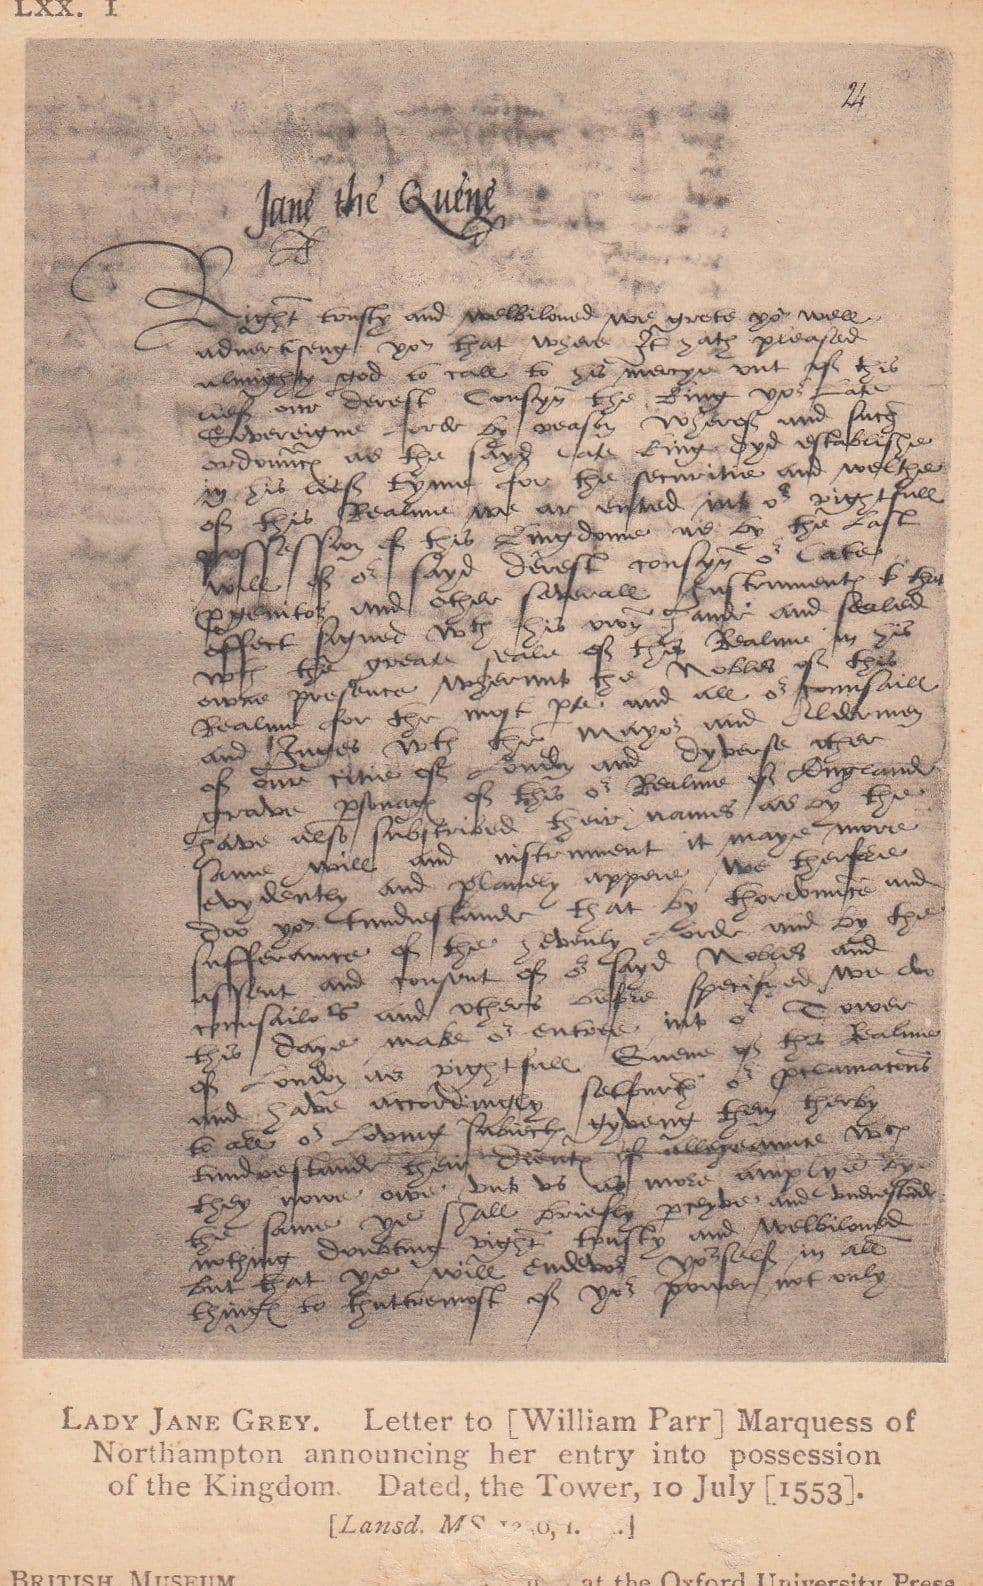 LXX. 1
24
Jane the Quene
Right trusty and welbiloued we grete yor well
advertiseng yor that where It hath pleased
almighty god to call to his mercye out of this
lief our derest Cousyn the King yor late
Sovereigne lorde by reason wherof and such
ordonnce as the sayd late king dyd establishe
in his lief tyme for the securitie and welthe
of this Realme we ar entred into or rightfull
possession of this Kingdome as by the last
will of or sayd derest cousyn or late
pgenitor and other severall Instruments to that
effect signed wth his own hande and sealed
wth the greate seale of this Realme in his
owne presence wherunto the Nobles of this
Realme for the most pte and all or counsaill
and Juges wth the Mayor and Aldermen
of our citie of London and dyverse other
grave psonags of this or Realme of Englande
have also subscribed their names as by the
same will and instrument it maye more
evydently and planely appere We therfore
doo yor tundrestande that by thordonnce and
sufferaunce of the hevenly lorde and by the
assent and consent of or sayd Nobles and
counsailors and others before specifyed We do
this daye make or entree into or Tower
of London as rightfull Quene of this Realme
and have accordingly setfurth or pclamacons
to all or loving subiects gyveng them therby
tundrestande their dueties of allegeaunce wch
they nowe owe unto us as more amplye by
the same ye shall briefly pceyve and undrestande
nothing doubting right trusty and welbiloued
but that ye will endevor yorself in all
things to thuttermost of yor power not only
LADY JANE GREY. Letter to [William Parr] Marquess of
Northampton announcing her entry into possession
of the Kingdom. Dated, the Tower, 10 July [1553].
[Lansd. MS
BRITISH MUSEUM
at the Oxford University Press